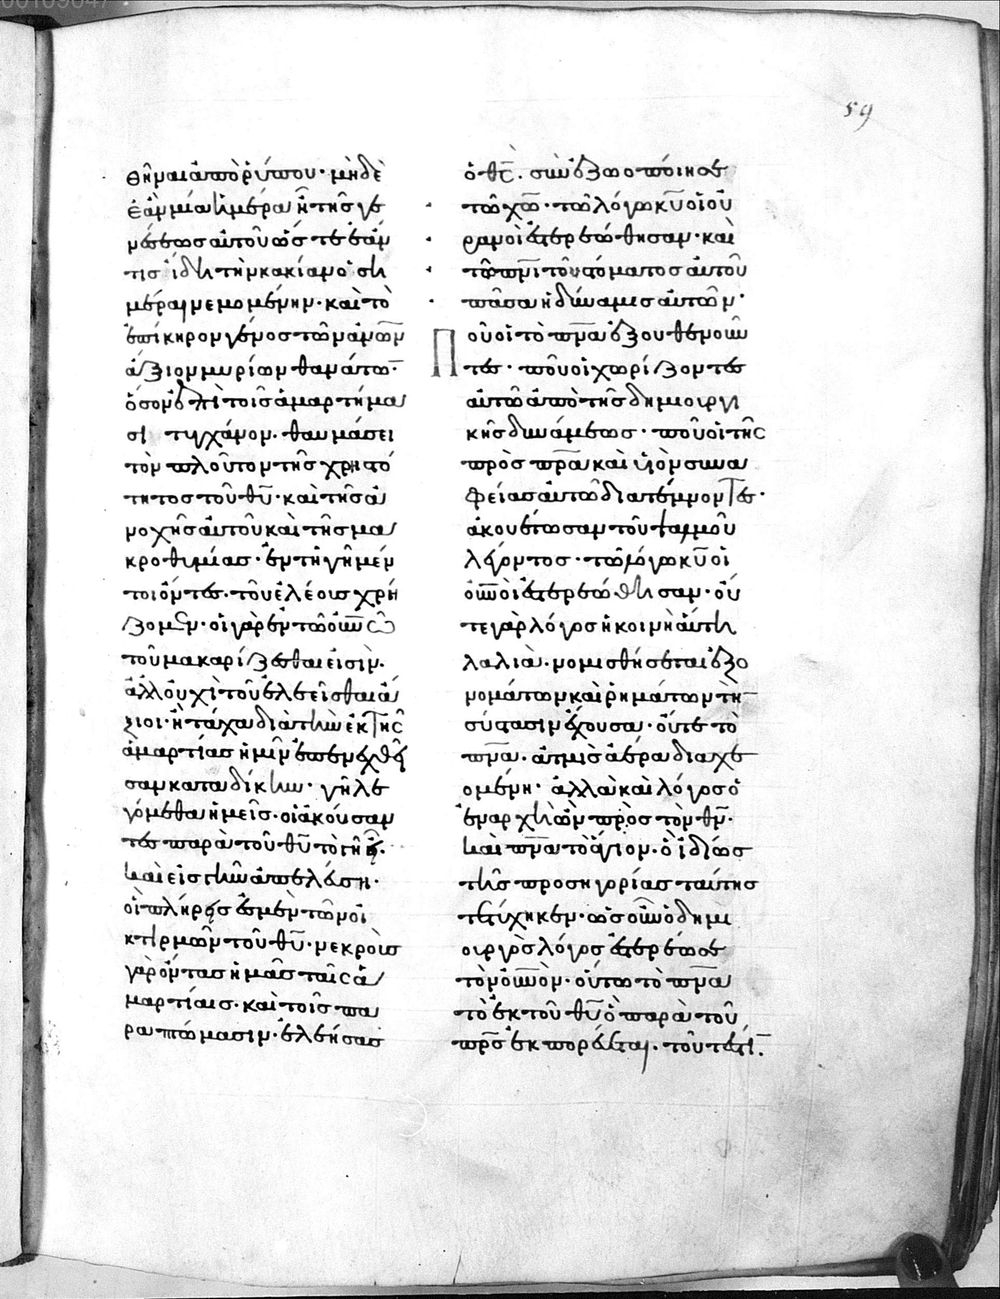 59
θῆναι ἀπὸ ῥύπου· μηδὲ
ἐὰν μία ἡμέρα ἢ τῆς γε
νέσεως αὐτοῦ ὥστε ἐάν
τις ἴδη τὴν κακίαν ὅση
μέραι γενομένην· καὶ τὸ
ἐπίκηρον γένος τῶν ἀνων
ἄξιον μυρίων θανάτω·
ὅσον ἐπὶ τοῖς ἁμαρτήμα
σι τυγχάνον· θαυμάσει
τὸν πλοῦτον τῆς χρηστό
τητος τοῦ θυ· καὶ τῆς ἀ
νοχῆς αὐτοῦ καὶ τῆς μα
κροθυμίας· ἐν τῆ γῆ μέν
τοι ὄντες· τοῦ ἐλέους χρή
ζομεν· οἱ γὰρ ἐν τῶ οὐνω
τοῦ μακαρίζεσθαι εἰσὶν·
ἀλλ' οὐχὶ τοῦ ἐλεεῖσθαι ἄ
ξιοι· ἢ τάχα διὰ τὴν ἐκ τῆς
ἁμαρτίας ἡμῖν ἐπενεχθεῖ
σαν καταδίκην· γῆ λε
γόμεθα ἡμεῖς· οἱ ἀκούσαν
τες παρὰ τοῦ θυ τὸ γῆ εἶ·
καὶ εἰς γῆν ἀπελεύση·
οἱ πλήρεις ἐσμὲν τῶν οἰ
κτιρμῶν τοῦ θυ· νεκροὺς
γὰρ ὄντας ἡμᾶς ταῖς ἁ
μαρτίαις· καὶ τοῖς πα
ραπτώμασιν· ἐλεήσας
ὁ θς· συνεζωοποίησε
τῶ χω· τῶ λόγω κυ οἱ οὐ
ρανοὶ ἐστερεώθησαν· καὶ
τῶ πνι τοῦ στόματος αὐτοῦ
πᾶσα ἡ δύναμις αὐτῶν·
Ποῦ οἱ τὸ πνα ἐξουθενοῦν
τες· ποῦ οἱ χωρίζοντες
αὐτὸ ἀπὸ τῆς δημιουργι
κῆς δυνάμεως· ποῦ οἱ τῆς
πρὸς πρα καὶ υἱὸν συνα
φείας αὐτὸ διατέμνοντες·
ἀκουέτωσαν τοῦ ψαλμοῦ
λέγοντος· τῶ λόγω κυ οἱ
οὐνοὶ ἐστερεώθησαν· οὔ
τε γὰρ λόγος ἡ κοινὴ αὕτη
λαλιὰ· νομισθήσεται ἐξ ὀ
νομάτων καὶ ῥημάτων τὴν
σύστασιν ἔχουσα· οὔτε τὸ
πνα· ἀτμὶς ἀέρα διαχε
ομένη· ἀλλὰ καὶ λόγος ὁ
ἐν ἀρχῆ ὢν πρὸς τὸν θν·
καὶ πνα τὸ ἅγιον· ὃ ἰδίως
τῆς προσηγορίας ταύτης
τετύχηκεν· ὡς οὖν ὁ δημι
ουργὸς λόγος ἐστερέωσε
τὸν οὐνὸν· οὕτω τὸ πνα
τὸ ἐκ τοῦ θυ ὃ παρὰ τοῦ
πρς ἐκπορεύεται· τουτέστι·